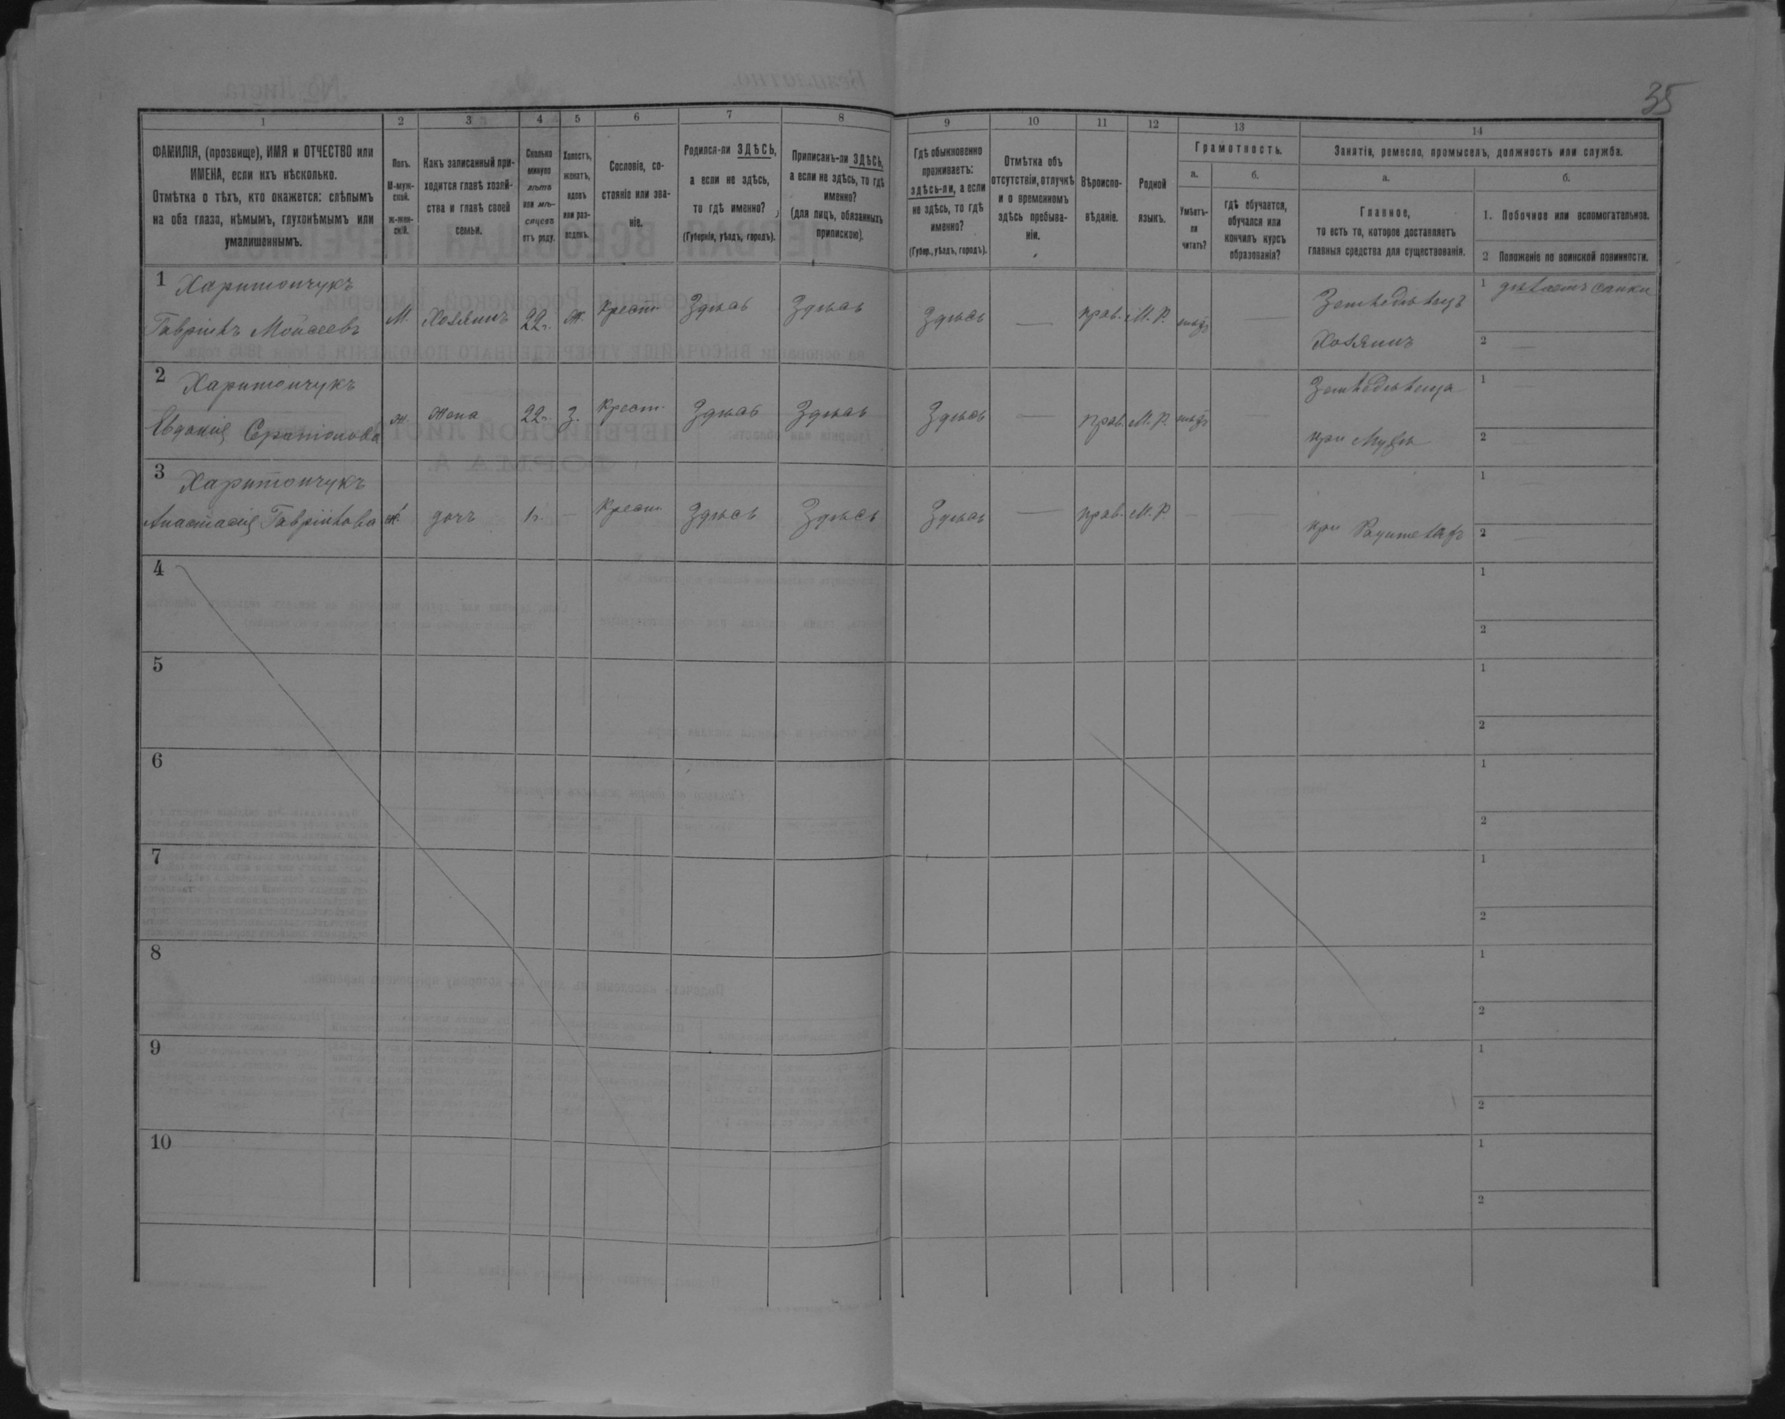 35
1
2
3
4
5
6
7
8
9
10
11
12
13
14
ФАМИЛІЯ, (прозвище), ИМЯ и ОТЧЕСТВО или
ИМЕНА, если ихъ нѣсколько.
Отмѣтка о тѣхъ, кто окажется: слѣпымъ
на оба глаза, нѣмымъ, глухонѣмымъ или
умалишеннымъ.
Полъ.
М-муж-
ской.
ж-жен-
скій.
Какъ записанный при-
ходится главѣ хозяй-
ства и главѣ своей
семьи.
Сколько
минуло
лѣтъ
или мѣ-
сяцевъ
отъ роду.
Холостъ,
женатъ,
вдовъ
или раз-
веденъ.
Сословіе, со-
стояніе или зва-
ніе.
Родился-ли ЗДѢСЬ,
а если не здѣсь,
то гдѣ именно?
(Губернія, уѣздъ, городъ).
Приписанъ-ли ЗДѢСЬ,
а если не здѣсь, то гдѣ
именно?
(для лицъ, обязанныхъ
припискою).
Гдѣ обыкновенно
проживаетъ:
здѣсь-ли, а если
не здѣсь, то гдѣ
именно?
(Губер., уѣздъ, городъ).
Отмѣтка объ
отсутствіи, отлучкѣ
и о временномъ
здѣсь пребыва-
ніи.
Вѣроиспо-
вѣданіе.
Родной
языкъ.
Грамотность.
а.
Умѣетъ-
ли
читать?
б.
гдѣ обучается,
обучался или
кончилъ курсъ
образованія?
Занятія, ремесло, промыселъ, должность или служба.
а.
Главное,
то есть то, которое доставляетъ
главныя средства для существованія.
б.
1. Побочное или вспомогательное.
2 Положеніе по воинской повинности.
1 Харитончукъ
Гавріилъ Моисеевъ М. Хозяинъ 22 г. Ж. Крест. Здѣсь Здѣсь Здѣсь — прав. М. Р. — Земледѣлецъ Хозяинъ 1 дѣлаетъ санки
2 —
2 Харитончукъ
Евдокія ж жена 22 г. З. Крест. Здѣсь Здѣсь Здѣсь — прав. М. Р. — Земледѣлица при Мужѣ 1 —
2 —
3 Харитончукъ
Анастасія Гавріилова ж. дочь 1 г. — Крест. Здѣсь Здѣсь Здѣсь — прав. М. Р. — — при Родителяхъ 1
2 —
4
1
2
5
1
2
6
1
2
7
1
2
8
1
2
9
1
2
10
1
2